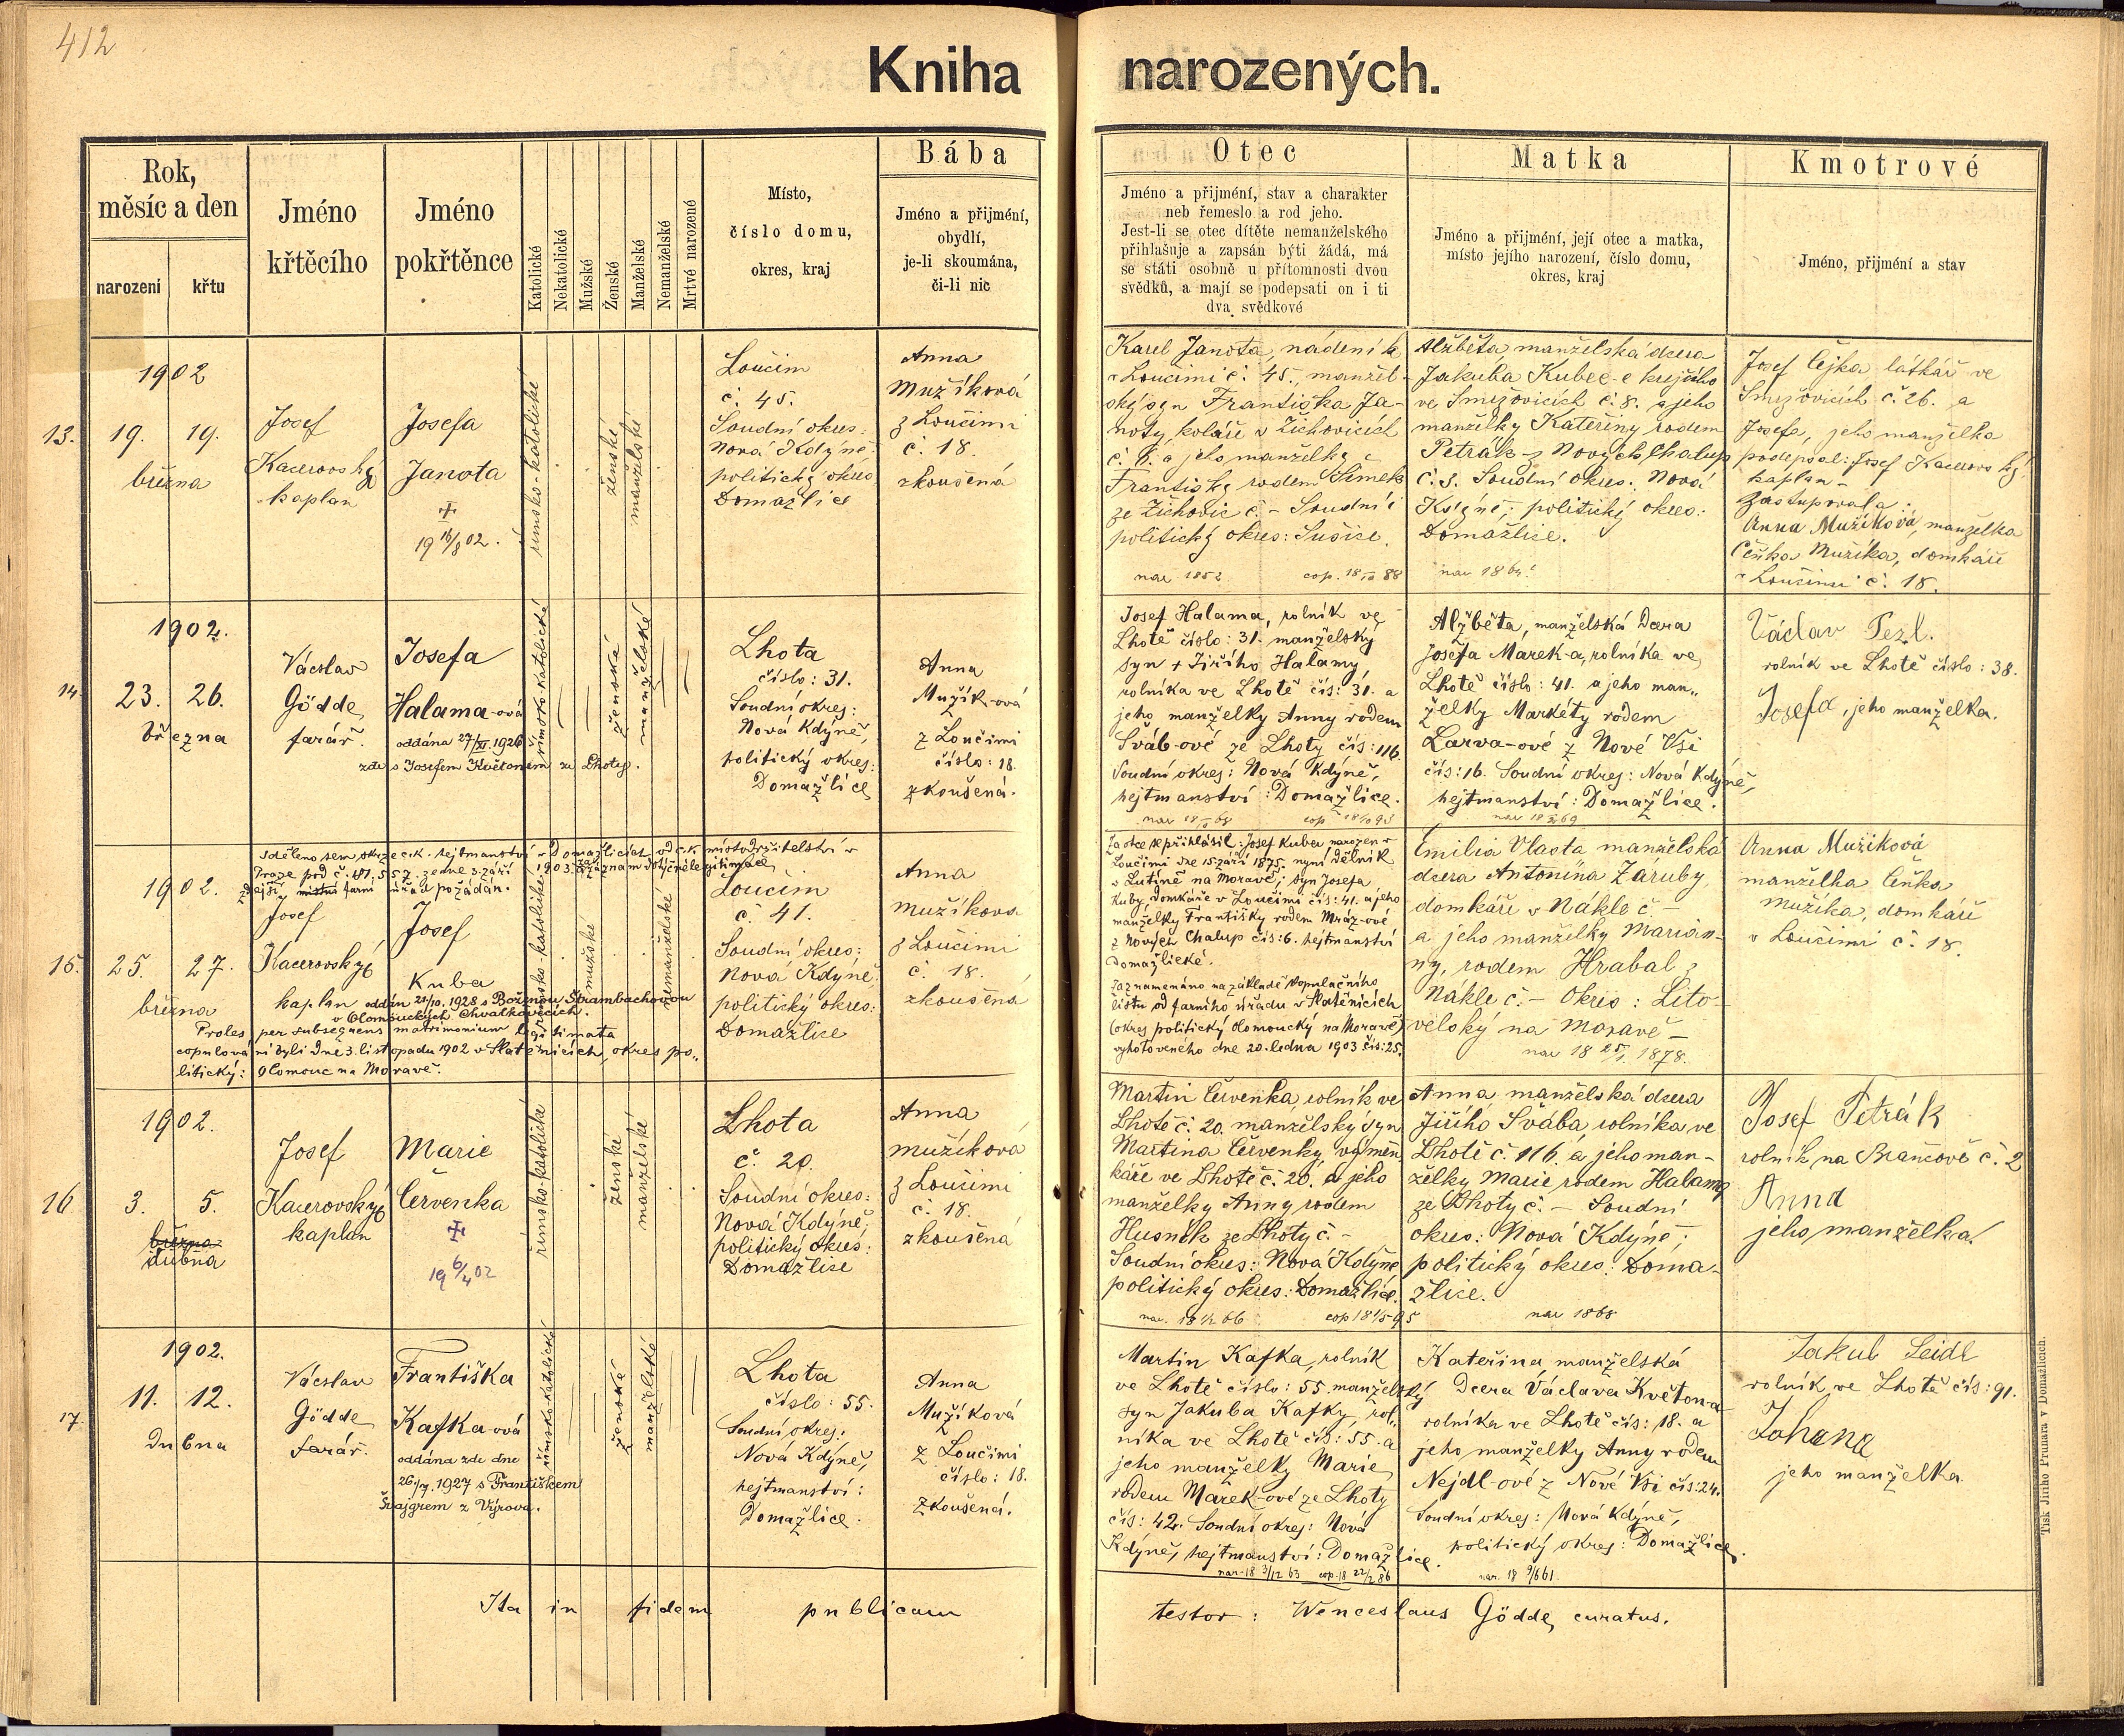 412
Kniha narozených.
Rok,
měsíc a den
narození
křtu
Jméno
křtěcího
Jméno
pokřtěnce
Katolické
Nekatolické
Mužské
Ženské
Manželské
Nemanželské
Mrtvé narozené
Místo,
číslo domu,
okres, kraj
Bába
Jméno a přijmění,
obydlí,
je-li skoumána,
či-li nic
Otec
Jméno a přijmění, stav a charakter
neb řemeslo a rod jeho.
Jest-li se otec dítěte nemanželského
přihlašuje a zapsán býti žádá, má
se státi osobně u přítomnosti dvou
svědků, a mají se podepsati on i ti
dva svědkové
Matka
Jméno a přijmění, její otec a matka,
místo jejího narození, číslo domu,
okres, kraj
Kmotrové
Jméno, přijmění a stav
13.
1902
19. 19.
března
Josef
Kacerovský
kaplan
Josefa
Janota
+
19 16/8 02.
římsko-katolické
ženské
manželské
Loučim
č. 45.
Soudní okres:
Nová Kdyně
politický okres
Domažlice
Anna
Mužíková
z Loučimi
č. 18.
zkoušená
Karel Janota, nádeník
v Loučimi č. 45., manžel-
ský syn Františka Ja-
noty, koláře v Žichovicích
č. 8. a jeho manželky
Františky rodem Šimek
ze Žichovic č. - Soudní i
politický okres: Sušice.
nar 1852 cop. 18 88
Alžběta, manželská dcera
Jakuba Kubec-e krejčího
ve Smržovicích č. 8. a jeho
manželky Kateřiny rodem
Petrák z Nových Chalup
č. 3. Soudní okres: Nová
Kdyně; politický okres:
Domažlice.
nar 1864
Josef Čejka látkář ve
Smržovicích č. 26. a
Josefa, jeho manželka
podepsal: Josef Kacerovský
kaplan-
Zastupovala:
Anna Mužíková, manželka
Čeňka Mužíka, domkáře
v Loučimi č. 18.
14.
1902.
23. 26.
března
Václav
Gödde,
farář.
Josefa
Halama-ová
oddána 27/XI. 1926
zde s Josefem Květonem ze Lhoty.
římsko-katolické
ženské
manželské
Lhota
číslo: 31.
Soudní okres:
Nová Kdyně,
politický okres:
Domažlice
Anna
Mužík-ová
z Loučimi
číslo: 18.
zkoušená.
Josef Halama, rolník ve
Lhotě číslo: 31. manželský
syn + Jiřího Halamy,
rolníka ve Lhotě čís: 31. a
jeho manželky Anny rodem
Šváb-ové ze Lhoty čís: 116.
Soudní okres: Nová Kdyně,
hejtmanství: Domažlice.
Alžběta, manželská Dcera
Josefa Marek-a, rolníka ve
Lhotě číslo: 41. a jeho man-
želky Markéty rodem
Larva-ové z Nové Vsi
čís: 16. Soudní okres: Nová Kdyně,
hejtmanství: Domažlice.
Václav Pezl.
rolník ve Lhotě číslo: 38.
Josefa, jeho manželka.
15.
Sděleno sem skrze c.k. hejtmanství v Domažlicích od c.k. místodržitelství v
Praze pod č. 181,557. ze dne 3. září 1903. Za záznam dotyčné legitimace
zdejší místní farní úřad požádán.
1902.
25. 27.
března
Josef
Kacerovský
kaplan
Josef
Kuba
oddán 21/10. 1928 s Boženou Štrambachovou
v Olomouckých Chvalkovicích.
Proles per subsequens matrimonium legitimata
copulováni byli dne 3. listopadu 1902 v Slatěnicích, okres po-
litický: Olomouc na Moravě.
římsko-katolické
mužské
nemanželské
Loučim
č. 41.
Soudní okres:
Nová Kdyně,
politický okres:
Domažlice
Anna
Mužíkova
z Loučimi
č. 18.
zkoušená
Za otce se přihlásil: Josef Kuba narozen v
Loučimi dne 15. září 1875, nyní dělník
v Lutíně na Moravě; syn Josefa
Kuby, domkáře v Loučimi čís: 41. a jeho
manželky Františky rodem Mráz-ové
z Nových Chalup čís: 6. hejtmanství
Domažlické.
Zaznamenáno na základě Kopulačního
listu od farního úřadu v Slatěnicích
(okres politický Olomoucký na Moravě)
vyhotoveného dne 20. ledna 1903 čís: 25.
Emilia Vlasta manželská
dcera Antonína Záruby,
domkáře v Nákle č. -
a jeho manželky Marian-
ny, rodem Hrabal z
Nákle č. - Okres: Lito-
velský na Moravě -
nar 18 25/1. 1878.
Anna Mužíková
manželka Čeňka
Mužíka, domkáře
v Loučimi č. 18.
16
1902.
3. 5.
března
dubna
Josef
Kacerovský
kaplan
Marie
Červenka
+
19 6/4 02
římsko-katolické
ženské
manželské
Lhota
č. 20.
Soudní okres:
Nová Kdyně;
politický okres:
Domažlice
Anna
Mužíková
z Loučimi
č. 18.
zkoušená
Martin Červenka rolník ve
Lhotě č. 20. manželský syn
Martina Červenky, výměn-
káře ve Lhotě č. 20. a jeho
manželky Anny rodem
Husník ze Lhoty č. -
Soudní okres: Nová Kdyně
politický okres: Domažlice.
nar. 18 66 cop 18 1/5 95
Anna manželská dcera
Jiřího Švába, rolníka ve
Lhotě č. 116. a jeho man-
želky Marie rodem Halama
ze Lhoty č. - Soudní
okres: Nová Kdyně;
politický okres: Doma-
žlice.
nar 1868
Josef Petrák
rolník na Prančově č. 2
Anna
jeho manželka.
17.
1902.
11. 12.
Dubna
Václav
Gödde,
farář.
Františka
Kafka-ová
oddána zde dne
1927 s Františkem
Švajgrem z Výrova.
římsko-katolické
ženské
manželské
Lhota
číslo: 55.
Soudní okres:
Nová Kdyně,
hejtmanství:
Domažlice.
Anna
Mužíková
z Loučimi
číslo: 18.
Zkoušená.
Martin Kafka, rolník
ve Lhotě číslo: 55. manželský
syn Jakuba Kafky, rol-
níka ve Lhotě čís: 55. a
jeho manželky Marie,
rodem Marek-ové ze Lhoty
čís: 42. Soudní okres: Nová
Kdyně, hejtmanství: Domažlice.
nar. 18 3/12 63 cop. 18 22/2 86
Kateřina manželská
Dcera Václava Květona
rolníka ve Lhotě čís: 18. a
jeho manželky Anny rodem
Nejdl-ové z Nové Vsi čís: 24.
Soudní okres: Nová Kdyně,
politický okres: Domažlice.
nar. 18 9/6 61.
Jakub Seidl
rolník ve Lhotě čís: 91.
Johana
jeho manželka
Ita in fidem publicam testor: Wenceslaus Gödde, curatus.
Tisk Jiřího Prunara v Domažlicích.